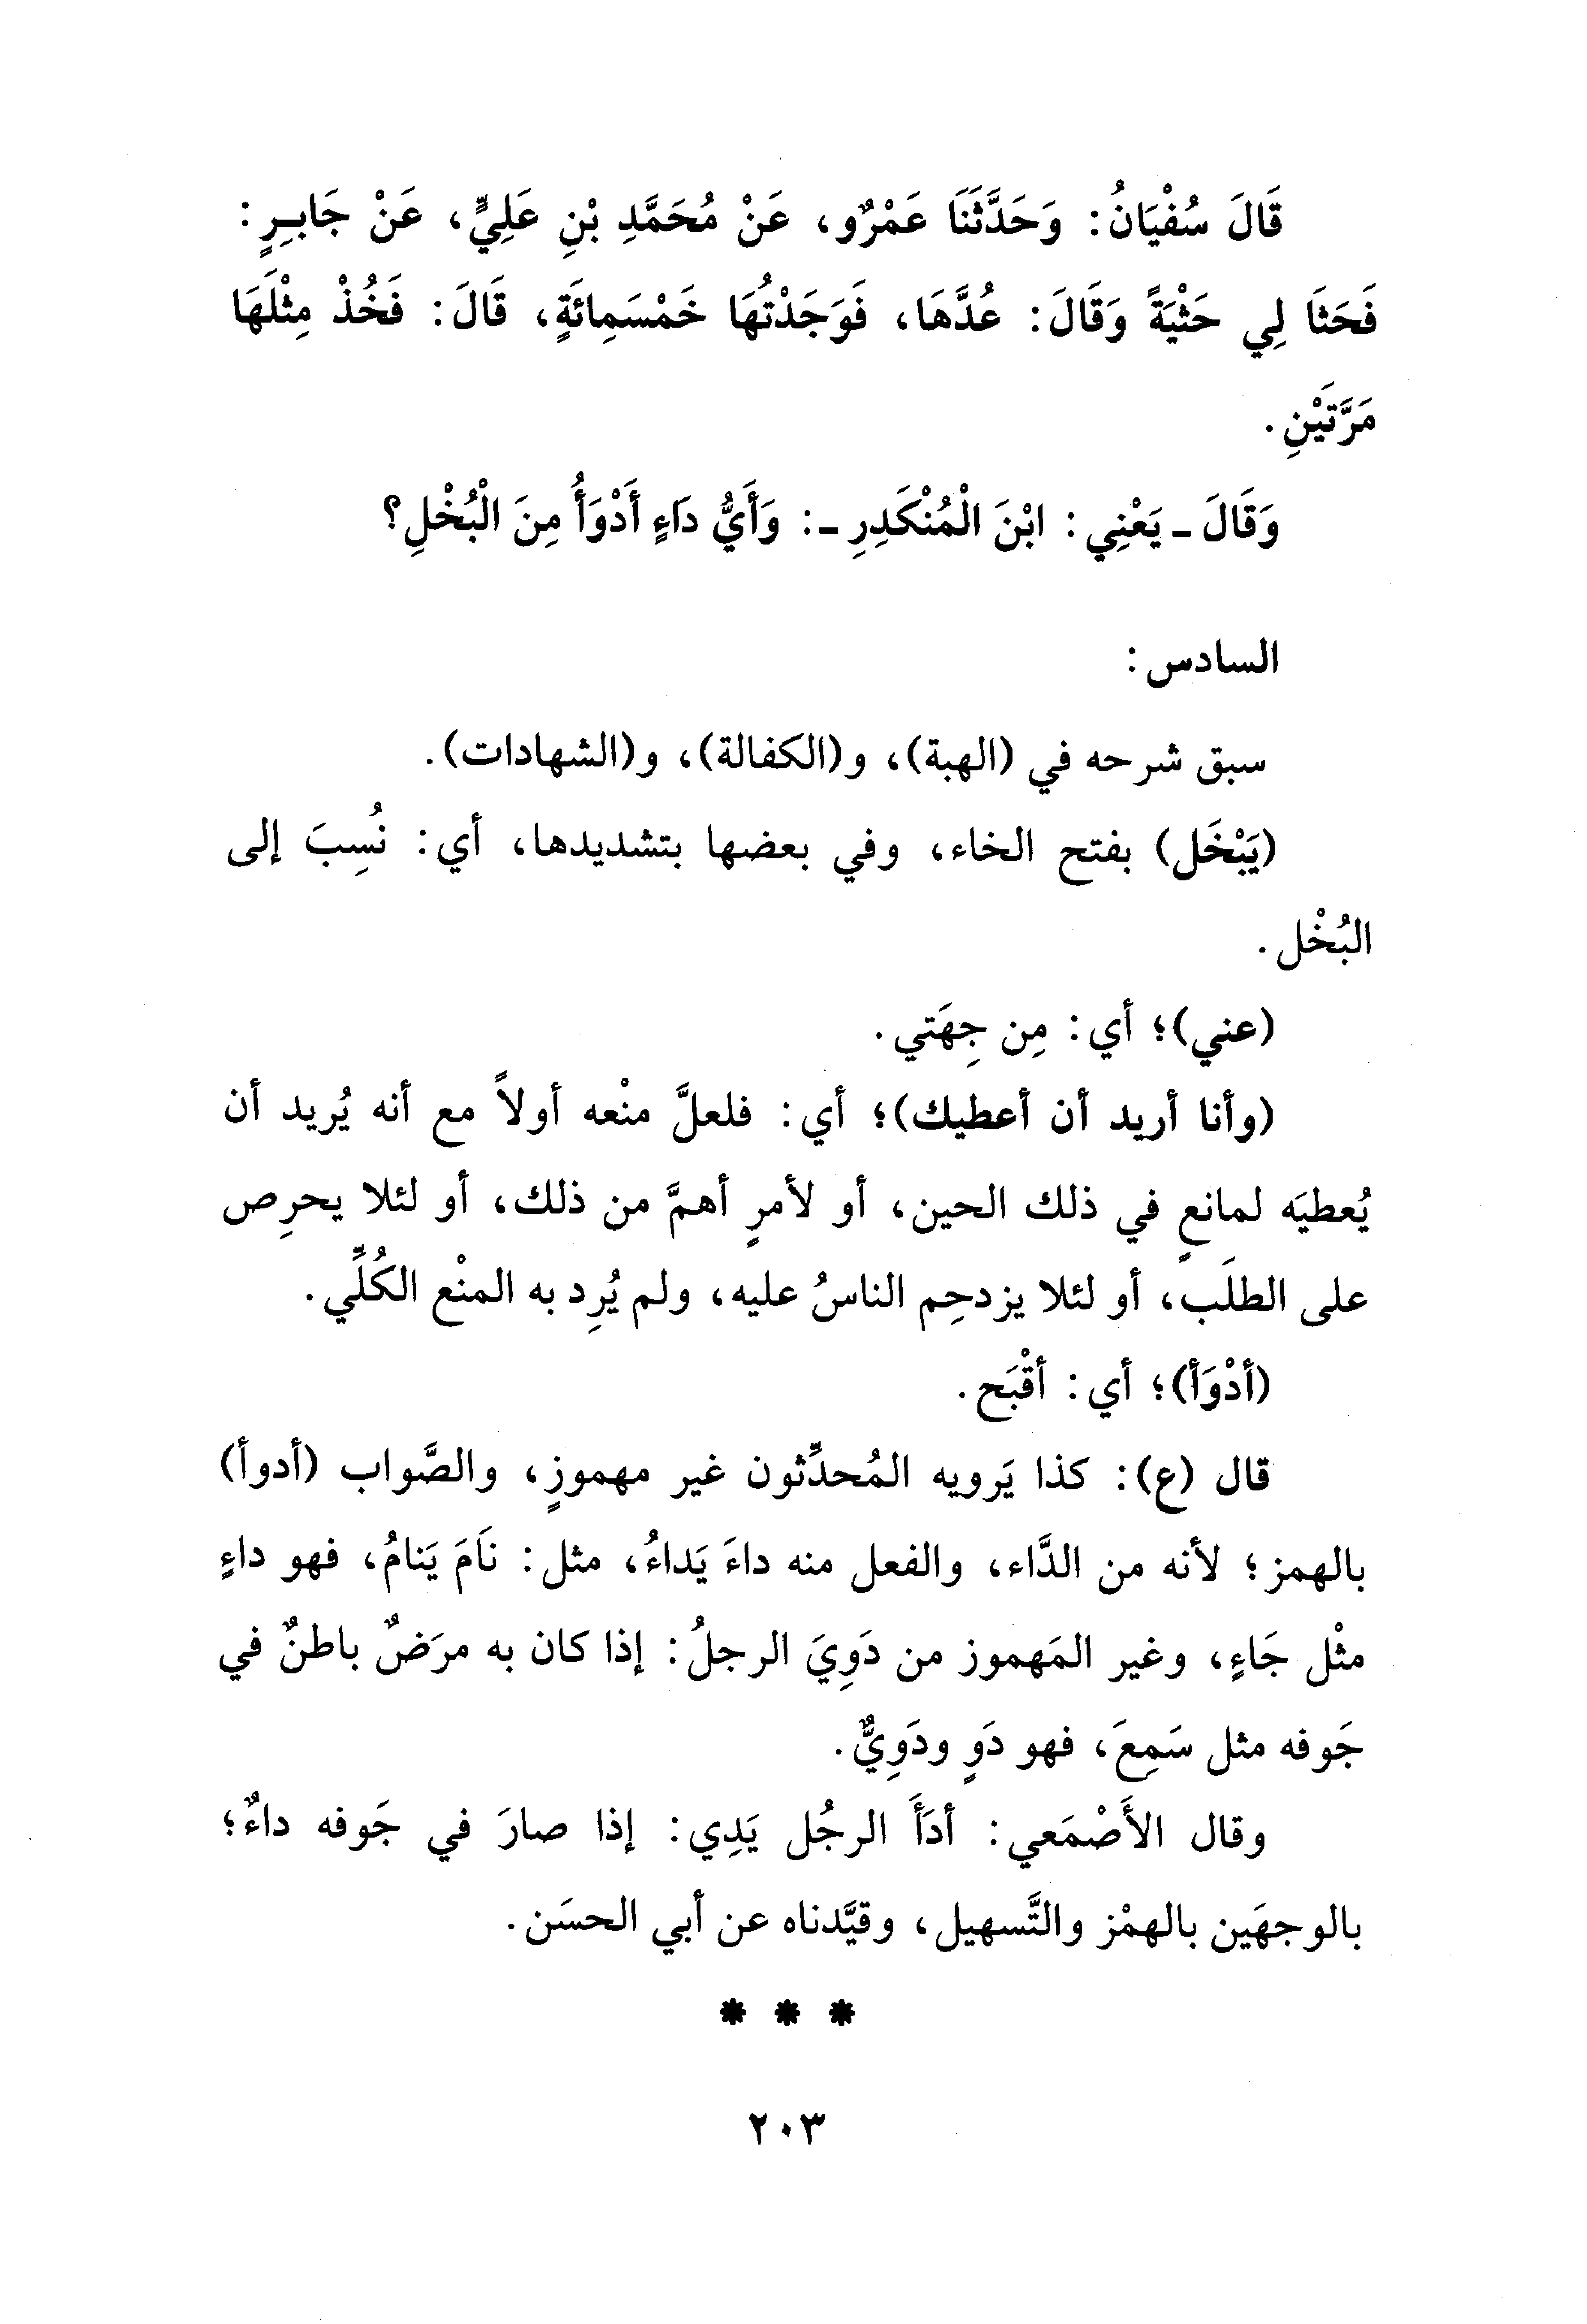 قَالَ سُفْيَانُ: وَحَدَّثَنَا عَمْرٌو، عَنْ مُحَمَّدِ بْنِ عَلِيٍّ، عَنْ جَابِرٍ:
فَحَثَا لِي حَثْيَةً وَقَالَ: عُدَّهَا، فَوَجَدْتُهَا خَمْسَمِائَةٍ، قَالَ: فَخُذْ مِثْلَهَا
مَرَّتَيْنِ.
وَقَالَ ـ يَعْنِي: ابْنَ الْمُنْكَدِرِ ـ: وَأَيُّ دَاءٍ أَدْوَأُ مِنَ الْبُخْلِ؟
السادس:
سبق شرحه في (الهبة)، و(الكفالة)، و(الشهادات).
(يَبْخَل) بفتح الخاء، وفي بعضها بتشديدها، أي: نُسِبَ إلى
البُخْل.
(عني)؛ أي: مِن جِهَتي.
(وأنا أريد أن أعطيك)؛ أي: فلعلَّ منْعه أولاً مع أنه يُريد أن
يُعطيَه لمانعٍ في ذلك الحين، أو لأمرٍ أهمَّ من ذلك، أو لئلا يحرِص
على الطلَب، أو لئلا يزدحِم الناسُ عليه، ولم يُرِد به المنْع الكُلِّي.
(أدْوَأ)؛ أي: أقْبَح.
قال (ع): كذا يَرويه المُحدِّثون غير مهموزٍ، والصَّواب (أدوأ)
بالهمز؛ لأنه من الدَّاء، والفعل منه داءَ يَداءُ، مثل: نَامَ يَنامُ، فهو داءٍ
مثْل جَاءٍ، وغير المَهموز من دَوِيَ الرجلُ: إذا كان به مرَضٌ باطنٌ في
جَوفه مثل سَمِعَ، فهو دَوٍ ودَوِيٌّ.
وقال الأَصْمَعي: أدَأَ الرجُل يَدِي: إذا صارَ في جَوفه داءٌ؛
بالوجهَين بالهمْز والتَّسهيل، وقيَّدناه عن أبي الحسَن.
* * *
٢٠٣